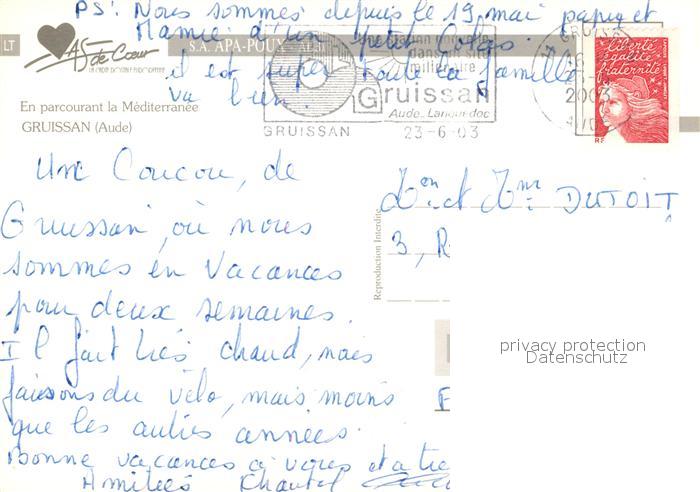 PS: Nous sommes depuis le 19 mai papy et
Mamie d'un petit
il est super toute la famille
va bien.
LT
As de Cœur
S.A. APA-POUX
millénaire
Gruissan
Aude
GRUISSAN
23-6-03
2003
liberté
égalité
fraternité
RF
En parcourant la Méditerranée
GRUISSAN (Aude)
Un Coucou, de
Gruissan, où nous
sommes en vacances
pour deux semaines.
Il fait très chaud, nous
faisons du vélo, mais moins
que les autres années.
Bonne vacances à vous
Amitiés Chantal
Reproduction Interdite
et Mme DUTOIT
3, R
privacy protection
Datenschutz